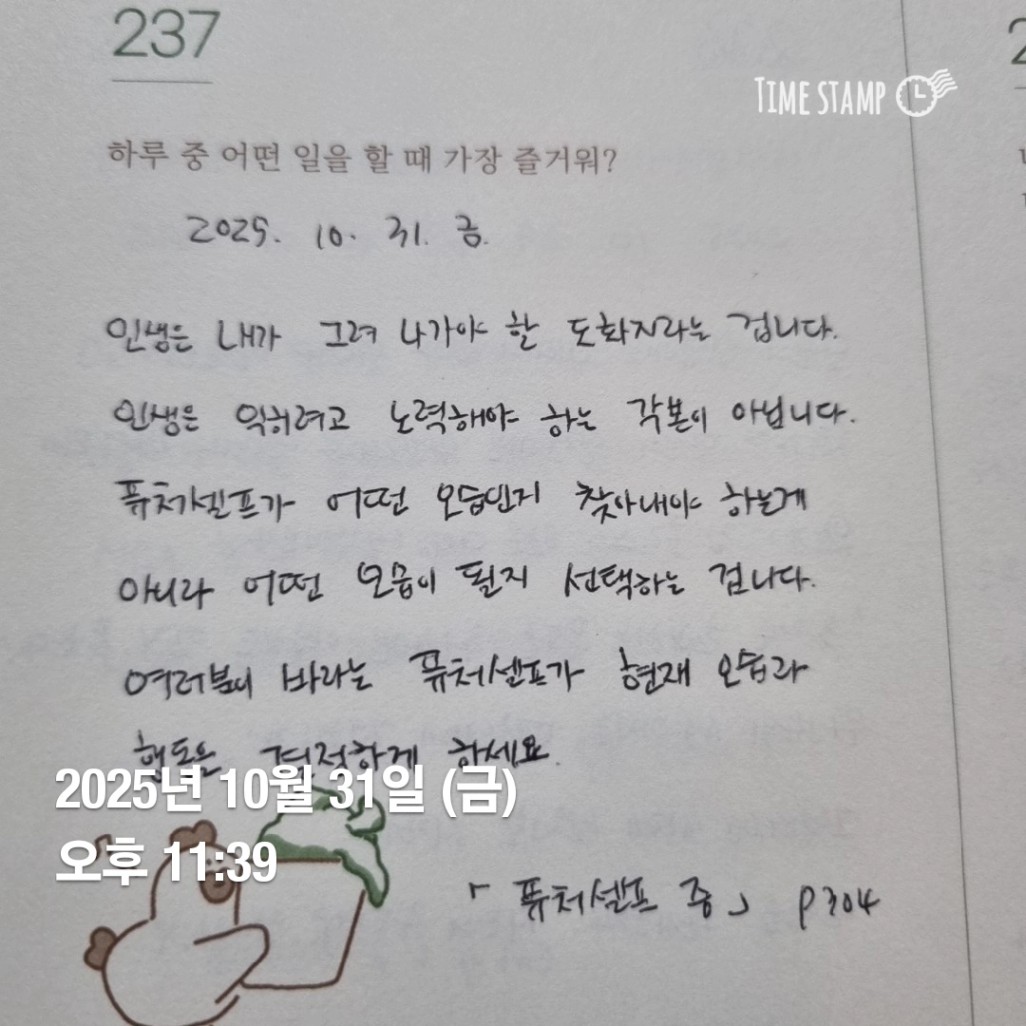 237
TIME STAMP
하루 중 어떤 일을 할 때 가장 즐거워?
2025. 10. 31. 금.
인생은 내가 그려 나가야 할 도화지라는 겁니다.
인생은 익히려고 노력해야 하는 각본이 아닙니다.
퓨처셀프가 어떤 모습인지 찾아내야 하는게
아니라 어떤 모습이 될지 선택하는 겁니다.
여러분이 바라는 퓨처셀프가 현재 모습과
행동을 결정하게 하세요.
2025년 10월 31일 (금)
오후 11:39
「퓨처셀프 중」 P304